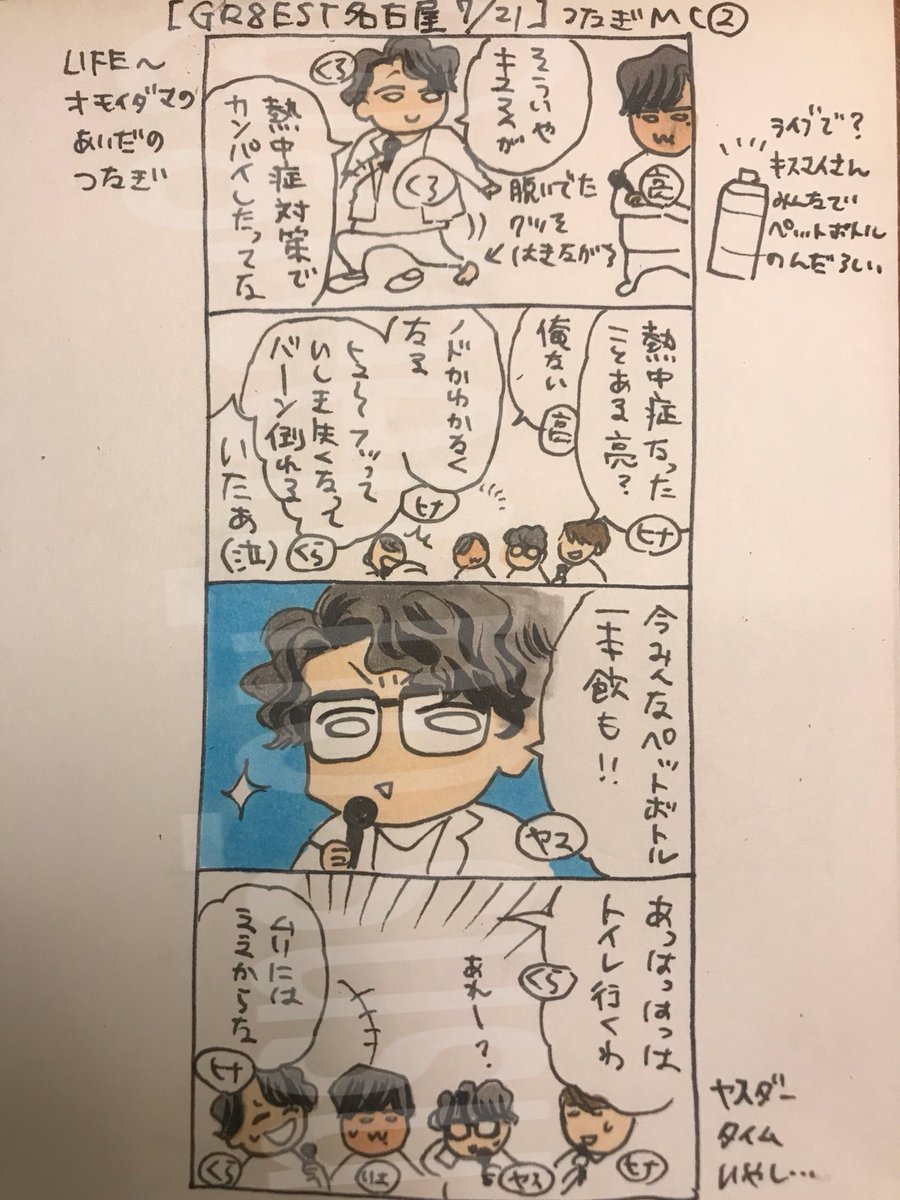 [GR8EST名古屋 7/21] つなぎMC②
LIFE〜
オモイダマの
あいだの
つなぎ
そういや
キスマイが
くら
くら
熱中症対策で
カンパイしたってな
脱いでた
クツを
はきながら
亮
ライブで?
キスマイさん
みんなで
ペットボトル
のんだらしい
熱中症なった
ことある亮?
ヒナ
俺ない
亮
ノドかわかるく
なる
ヒナ
いしき失くなって
バーン倒れる
いたぁ(泣)
くら
今みんなペットボトル
一本飲も!!
ヤス
あっはっはっは
トイレ行くわ
くら
あれー?
ムリには
ええからな
ヒナ
くら
りょ
ヤス
ヒナ
ヤスダー
タイム
いやし…